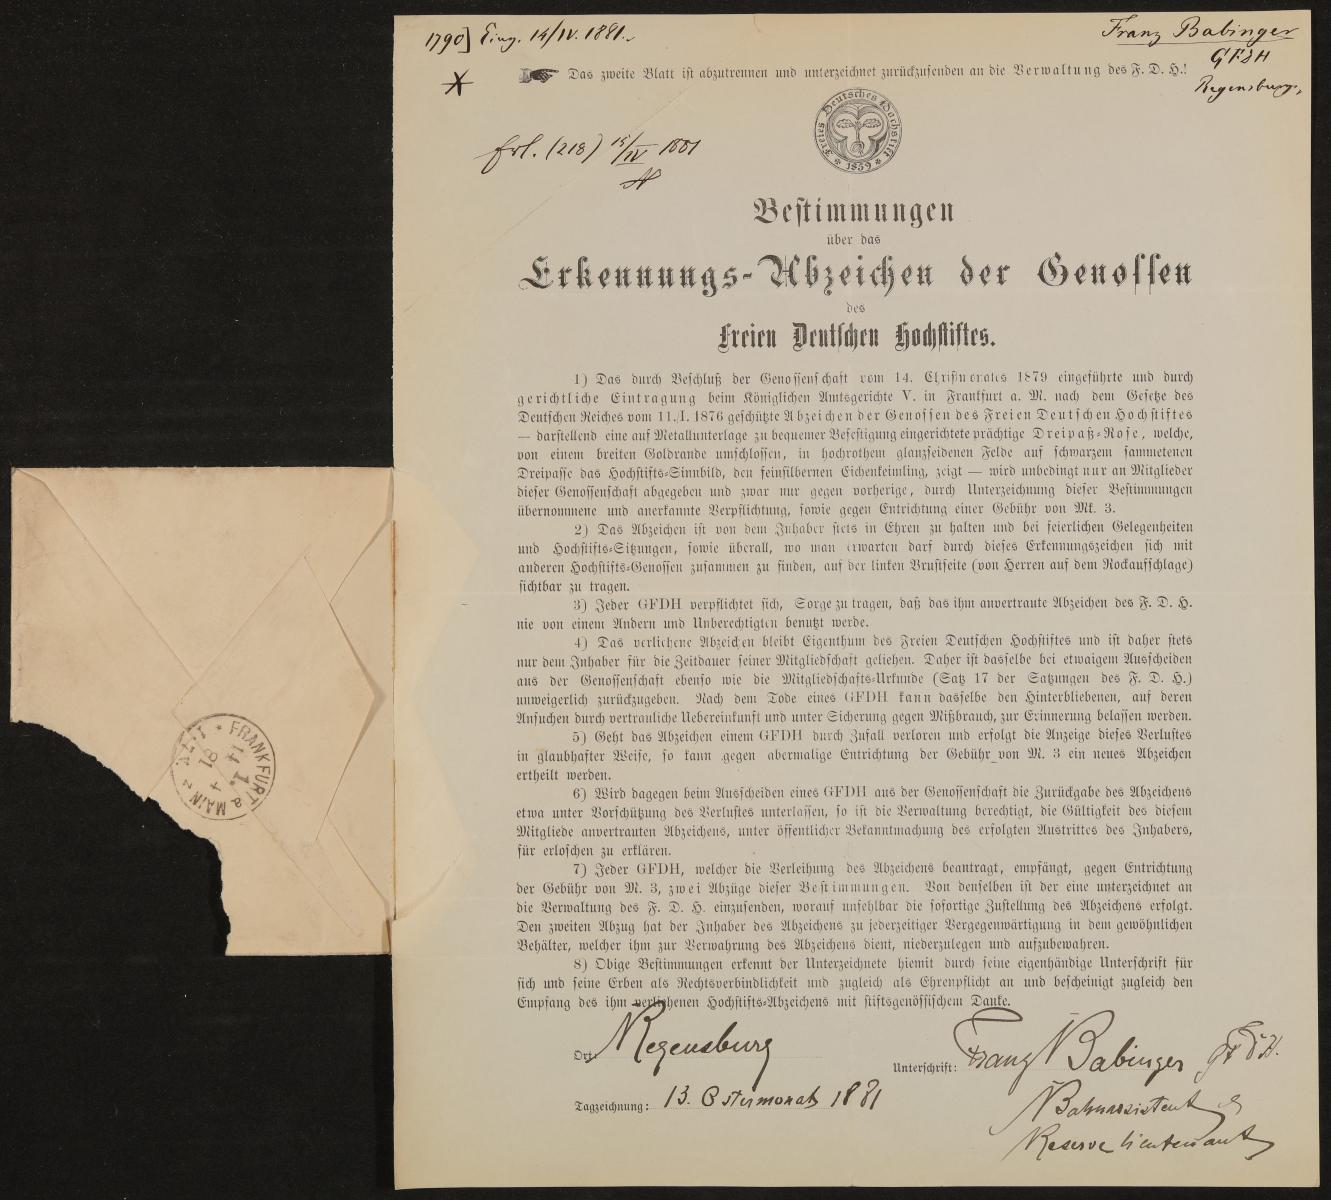 1790] Eing. 14/IV. 1881.
Franz Babinger
GFDH
Regensburg,
Das zweite Blatt ist abzutrennen und unterzeichnet zurückzusenden an die Verwaltung des F. D. H.!
Freies Deutsches Hochstift
* 1859 *
Erl. (218) 15/IV 1881
Bestimmungen
über das
Erkennungs-Abzeichen der Genossen
des
Freien Deutschen Hochstiftes.
1) Das durch Beschluß der Genossenschaft vom 14. Christmonates 1879 eingeführte und durch
gerichtliche Eintragung beim Königlichen Amtsgerichte V. in Frankfurt a. M. nach dem Gesetze des
Deutschen Reiches vom 11./I. 1876 geschützte Abzeichen der Genossen des Freien Deutschen Hochstiftes
— darstellend eine auf Metallunterlage zu bequemer Befestigung eingerichtete prächtige Dreipaß-Rose, welche,
von einem breiten Goldrande umschlossen, in hochrothem glanzseidenen Felde auf schwarzem sammetenen
Dreipasse das Hochstifts-Sinnbild, den feinsilbernen Eichenkeimling, zeigt — wird unbedingt nur an Mitglieder
dieser Genossenschaft abgegeben und zwar nur gegen vorherige, durch Unterzeichnung dieser Bestimmungen
übernommene und anerkannte Verpflichtung, sowie gegen Entrichtung einer Gebühr von Mk. 3.
2) Das Abzeichen ist von dem Inhaber stets in Ehren zu halten und bei feierlichen Gelegenheiten
und Hochstifts-Sitzungen, sowie überall, wo man erwarten darf durch dieses Erkennungszeichen sich mit
anderen Hochstifts-Genossen zusammen zu finden, auf der linken Brustseite (von Herren auf dem Rockaufschlage)
sichtbar zu tragen.
3) Jeder GFDH verpflichtet sich, Sorge zu tragen, daß das ihm anvertraute Abzeichen des F. D. H.
nie von einem Andern und Unberechtigten benutzt werde.
4) Das verliehene Abzeichen bleibt Eigenthum des Freien Deutschen Hochstiftes und ist daher stets
nur dem Inhaber für die Zeitdauer seiner Mitgliedschaft geliehen. Daher ist dasselbe bei etwaigem Ausscheiden
aus der Genossenschaft ebenso wie die Mitgliedschafts-Urkunde (Satz 17 der Satzungen des F. D. H.)
unweigerlich zurückzugeben. Nach dem Tode eines GFDH kann dasselbe den Hinterbliebenen, auf deren
Ansuchen durch vertrauliche Uebereinkunft und unter Sicherung gegen Mißbrauch, zur Erinnerung belassen werden.
5) Geht das Abzeichen einem GFDH durch Zufall verloren und erfolgt die Anzeige dieses Verlustes
in glaubhafter Weise, so kann gegen abermalige Entrichtung der Gebühr von M. 3 ein neues Abzeichen
ertheilt werden.
6) Wird dagegen beim Ausscheiden eines GFDH aus der Genossenschaft die Zurückgabe des Abzeichens
etwa unter Vorschützung des Verlustes unterlassen, so ist die Verwaltung berechtigt, die Gültigkeit des diesem
Mitgliede anvertrauten Abzeichens, unter öffentlicher Bekanntmachung des erfolgten Austrittes des Inhabers,
für erloschen zu erklären.
7) Jeder GFDH, welcher die Verleihung des Abzeichens beantragt, empfängt, gegen Entrichtung
der Gebühr von M. 3, zwei Abzüge dieser Bestimmungen. Von denselben ist der eine unterzeichnet an
die Verwaltung des F. D. H. einzusenden, worauf unfehlbar die sofortige Zustellung des Abzeichens erfolgt.
Den zweiten Abzug hat der Inhaber des Abzeichens zu jederzeitiger Vergegenwärtigung in dem gewöhnlichen
Behälter, welcher ihm zur Verwahrung des Abzeichens dient, niederzulegen und aufzubewahren.
8) Obige Bestimmungen erkennt der Unterzeichnete hiemit durch seine eigenhändige Unterschrift für
sich und seine Erben als Rechtsverbindlichkeit und zugleich als Ehrenpflicht an und bescheinigt zugleich den
Empfang des ihm verliehenen Hochstifts-Abzeichens mit stiftsgenössischem Danke.
Ort: Regensburg
Unterschrift: Franz Babinger GFDH.
Tagzeichnung: 13. Ostermonats 1881
Bahnassistent &
Reservelieutenant
* FRANKFURT a. MAIN
14 4
81